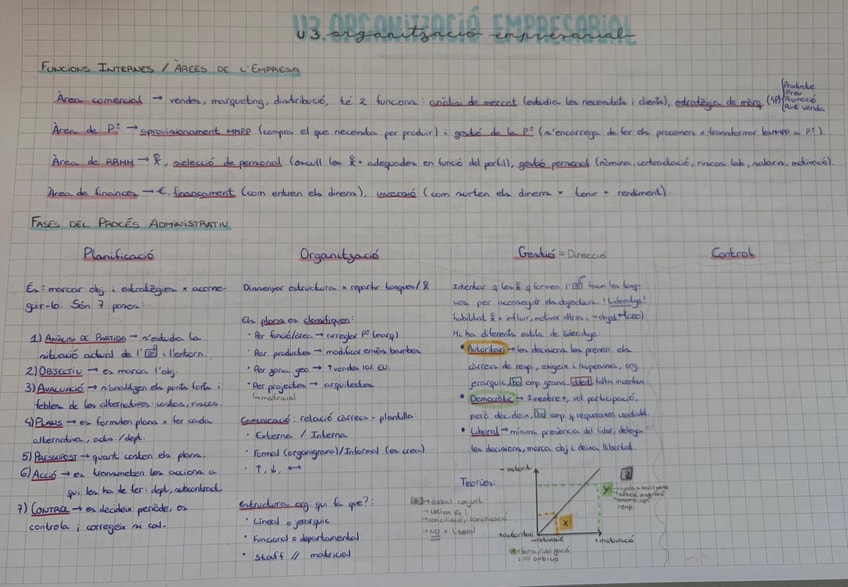 U3. ORGANITZACIÓ EMPRESARIAL
U3. organització empresarial
FUNCIONS INTERNES / ÀREES DE L'EMPRESA
Àrea comercial → vendes, marqueting, distribució, té 2 funcions: anàlisi de mercat (estudia les necessitats i clients), estratègia de màrq (4P)
Producte
Preu
Promoció
Punt venda
Àrea de P° → aprovisionament MMPP (compra el que necessita per produir) i gestió de la P° (s'encarrega de fer els processos x transformar les MMPP a P°).
Àrea de RRHH → selecció de personal (escull les + adequades en funció del perfil), gestió personal (nòmina, contractació, riscos lab, salaris, motivació).
Àrea de finances → €, finançament (com entren els diners), inversió (com surten els diners x tenir + rendiment)
FASES DEL PROCÉS ADMINISTRATIU
Planificació
És: marcar obj i estratègies x aconse-
guir-lo. Són 7 passos:
1) ANÀLISI DE SITUACIÓ → s'estudia la
situació actual de l' i l'entorn.
2) OBJECTIU → es marca l'obj.
3) AVALUACIÓ → s'analitzen els punts forts i
febles de les alternatives: costos, riscos.
4) PLANS → es formulen plans x fer cada
alternativa, actiu/dept.
5) PRESSUPOST → quant costen els plans.
6) ACCIÓ → es transmeten les accions a
qui les ha de fer: dept, subcontract.
7) CONTROL → es decideix període, es
controla i corregeix si cal.
Organització
Dissenyar estructura x repartir tasques/
Els plans es classifiquen:
· Per funció/àrea → corregir P° (marq)
· Per productes → modificar envàs bourbon
· Per zona geo → ↑ vendes 10% EU.
· Per projectes → arquitectes
↳ matricial
Comunicació: relació càrrecs - plantilla
· Externa / Interna
· Formal (organigrama)/Informal (es crea)
· ↑, ↓, ↔
Estructura org qui fa què?:
· Lineal o jeràrquic
· Funcional o departamental
· Staff // matricial
Gestió = Direcció
Intentar q les q formen l' facin les tas-
ques per aconseguir els objectius. ! Lideratge!
habilitat x influir, motivar altres i → objs (CEO)
Hi ha diferents estils de lideratge:
• Autoritari → les decisions les prenen els
càrrecs de resp, exigeix i supervisa, org
jeràrquic, emp grans, falta incentiu
• Democràtic → 1 membre +, vol participació,
però decideix,
• Liberal → mínima presència del líder, delega
les decisions, marca obj i deixa llibertat
Teories:
- autorit.
+ autoritari
- motivació
+ motivació
X
Y
Control